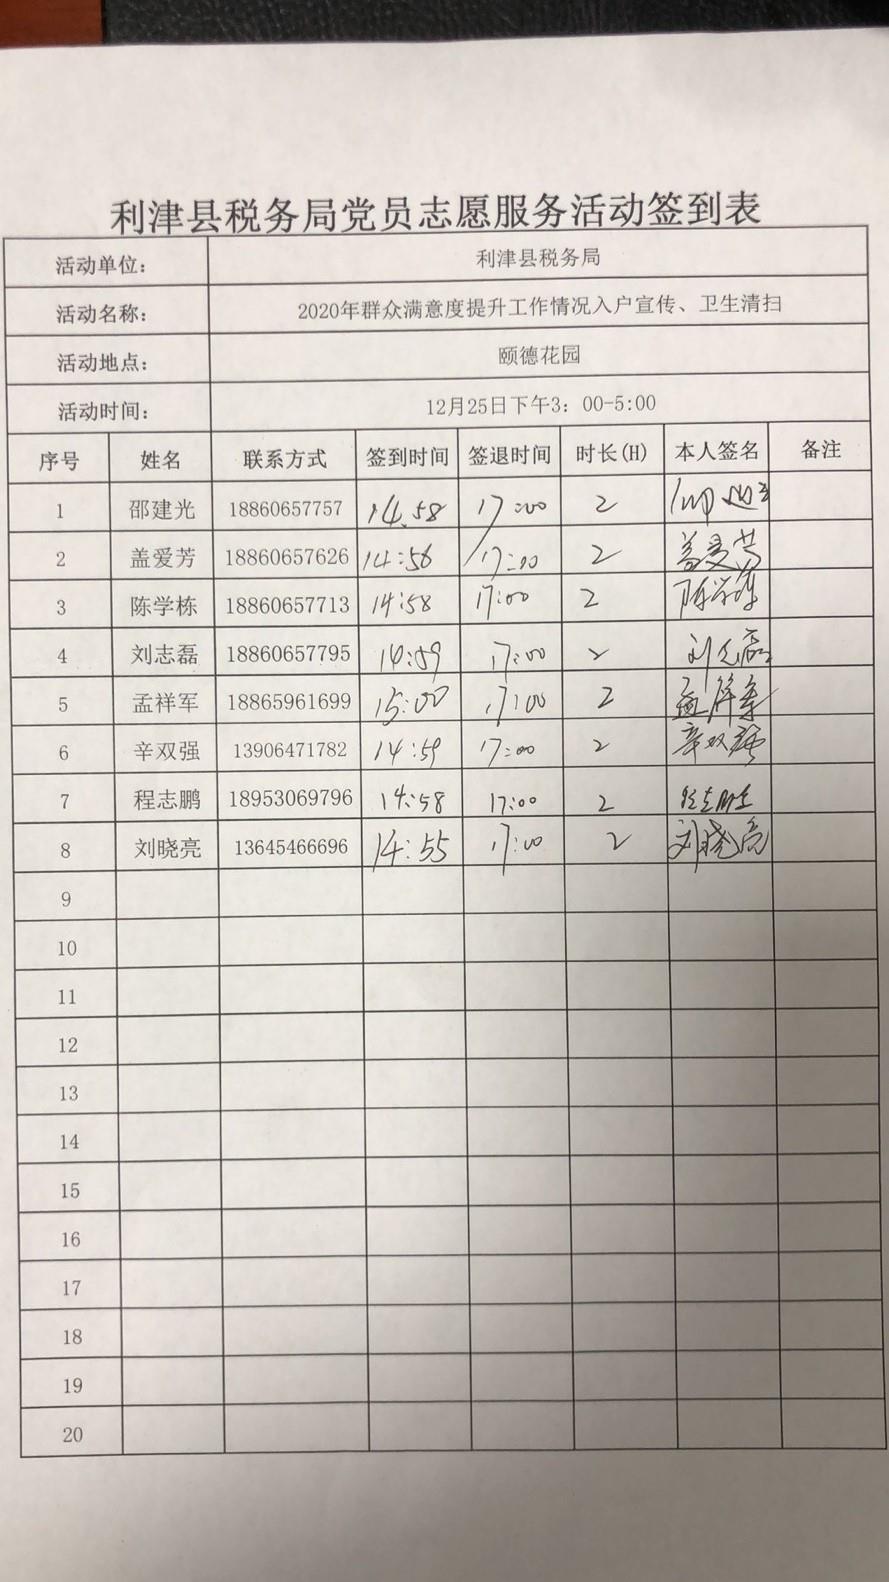 利津县税务局党员志愿服务活动签到表
活动单位： 利津县税务局
活动名称： 2020年群众满意度提升工作情况入户宣传、卫生清扫
活动地点： 颐德花园
活动时间： 12月25日下午3：00-5:00
序号 姓名 联系方式 签到时间 签退时间 时长(H) 本人签名 备注
1 邵建光 18860657757 14:58 17:00 2
2 盖爱芳 18860657626 14:56 17:00 2 盖爱芳
3 陈学栋 18860657713 14:58 17:00 2 陈学栋
4 刘志磊 18860657795 14:59 17:00 2 刘志磊
5 孟祥军 18865961699 15:00 17:00 2 孟祥军
6 辛双强 13906471782 14:59 17:00 2 辛双强
7 程志鹏 18953069796 14:58 17:00 2
8 刘晓亮 13645466696 14:55 17:00 2 刘晓亮
9
10
11
12
13
14
15
16
17
18
19
20